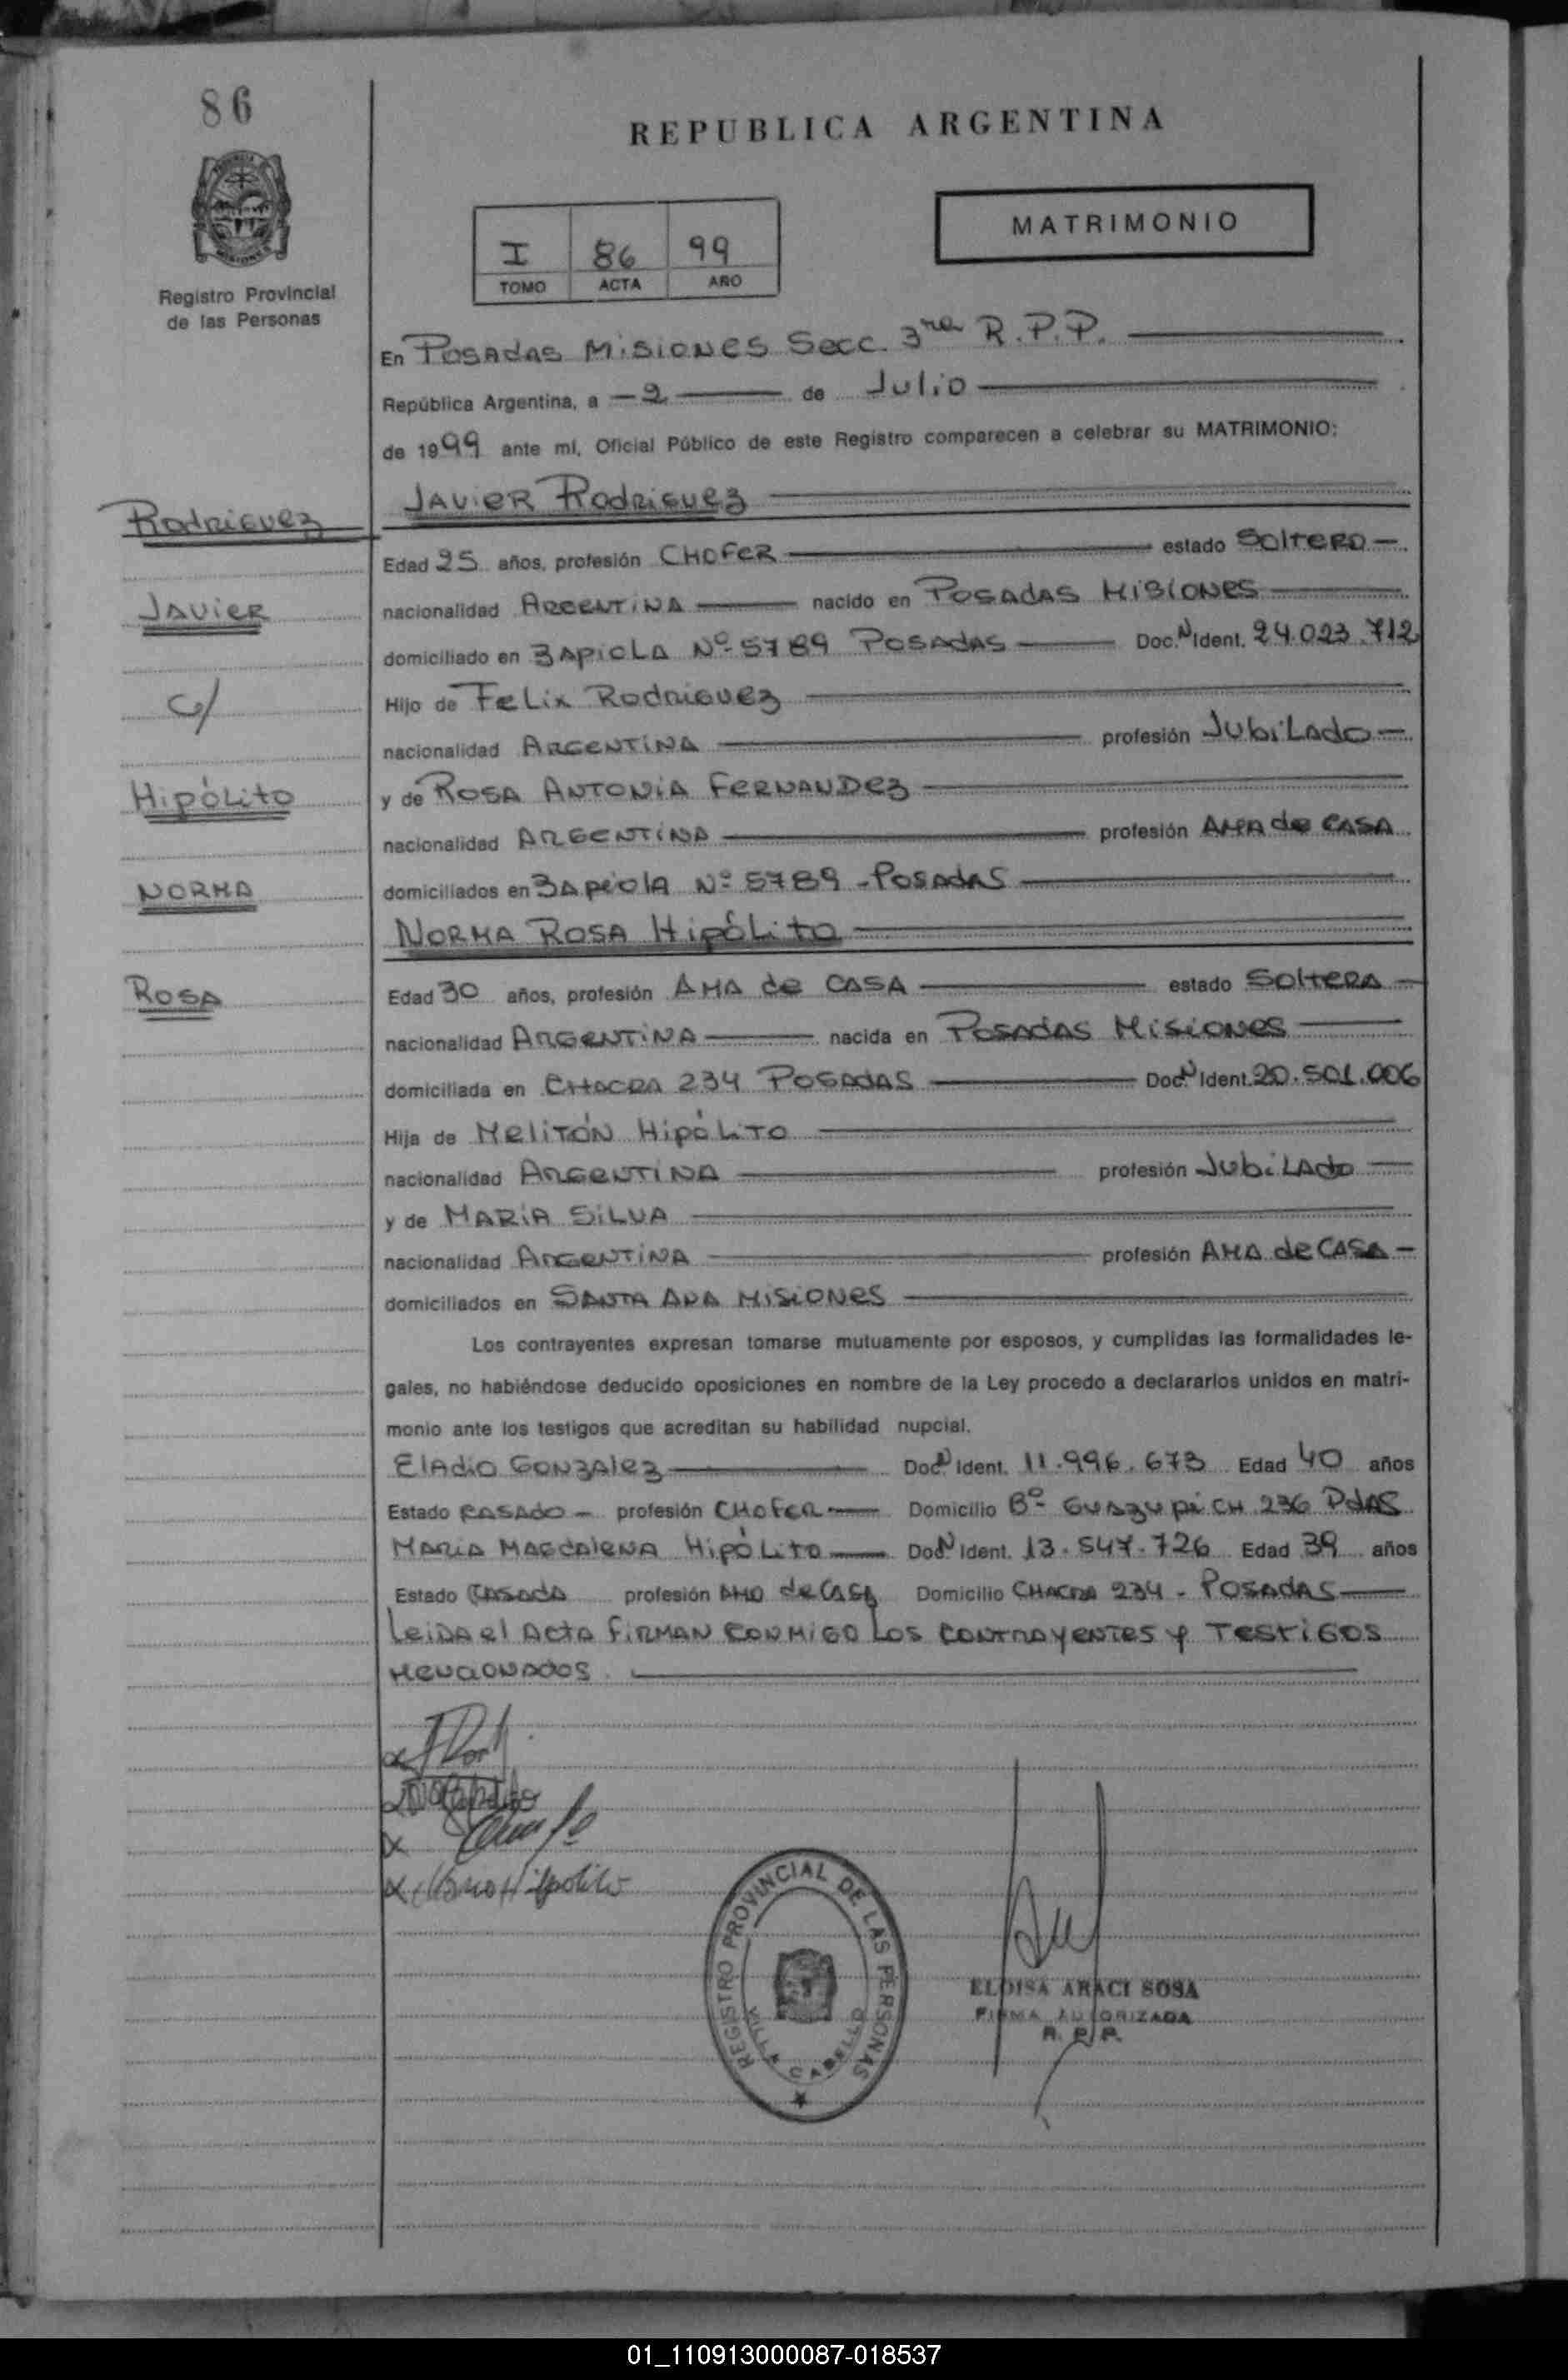 86
REPUBLICA ARGENTINA
MATRIMONIO
I 86 99
TOMO ACTA AÑO
Registro Provincial
de las Personas
En Posadas Misiones Secc. 3ra R.P.P.
República Argentina, a - 2 de Julio
de 1999 ante mí, Oficial Público de este Registro comparecen a celebrar su MATRIMONIO:
Javier Rodriguez
Rodriguez
Edad 25 años, profesión Chofer estado Soltero
Javier
nacionalidad Argentina nacido en Posadas Misiones
domiciliado en Zapiola Nº 5789 Posadas Doc. N Ident. 24.023.712
c/
Hijo de Felix Rodriguez
nacionalidad Argentina profesión Jubilado
Hipólito
y de Rosa Antonia Fernandez
nacionalidad Argentina profesión Ama de casa
Norma
domiciliados en Zapiola Nº 5789 - Posadas
Norma Rosa Hipólito
Rosa
Edad 30 años, profesión Ama de casa estado Soltera
nacionalidad Argentina nacida en Posadas Misiones
domiciliada en Chacra 234 Posadas Doc. N Ident. 20.501.006
Hija de Melitón Hipólito
nacionalidad Argentina profesión Jubilado
y de Maria Silva
nacionalidad Argentina profesión Ama de casa
domiciliados en Santa Ana Misiones
Los contrayentes expresan tomarse mutuamente por esposos, y cumplidas las formalidades le-
gales, no habiéndose deducido oposiciones en nombre de la Ley procedo a declararlos unidos en matri-
monio ante los testigos que acreditan su habilidad nupcial.
Eladio Gonzalez Doc. N Ident. 11.996.673 Edad 40 años
Estado casado - profesión Chofer Domicilio Bº Guazupi CH. 236 Pdas
Maria Magdalena Hipólito Doc. N Ident. 13.547.726 Edad 39 años
Estado casada profesión Ama de casa Domicilio Chacra 234 - Posadas
Leida el acta firman conmigo los contrayentes y testigos
mencionados.
Maria Hipolito
REGISTRO PROVINCIAL DE LAS PERSONAS
VILLA CABELLO
ELOISA ARACI SOSA
FIRMA AUTORIZADA
R. P. P.
01_110913000087-018537